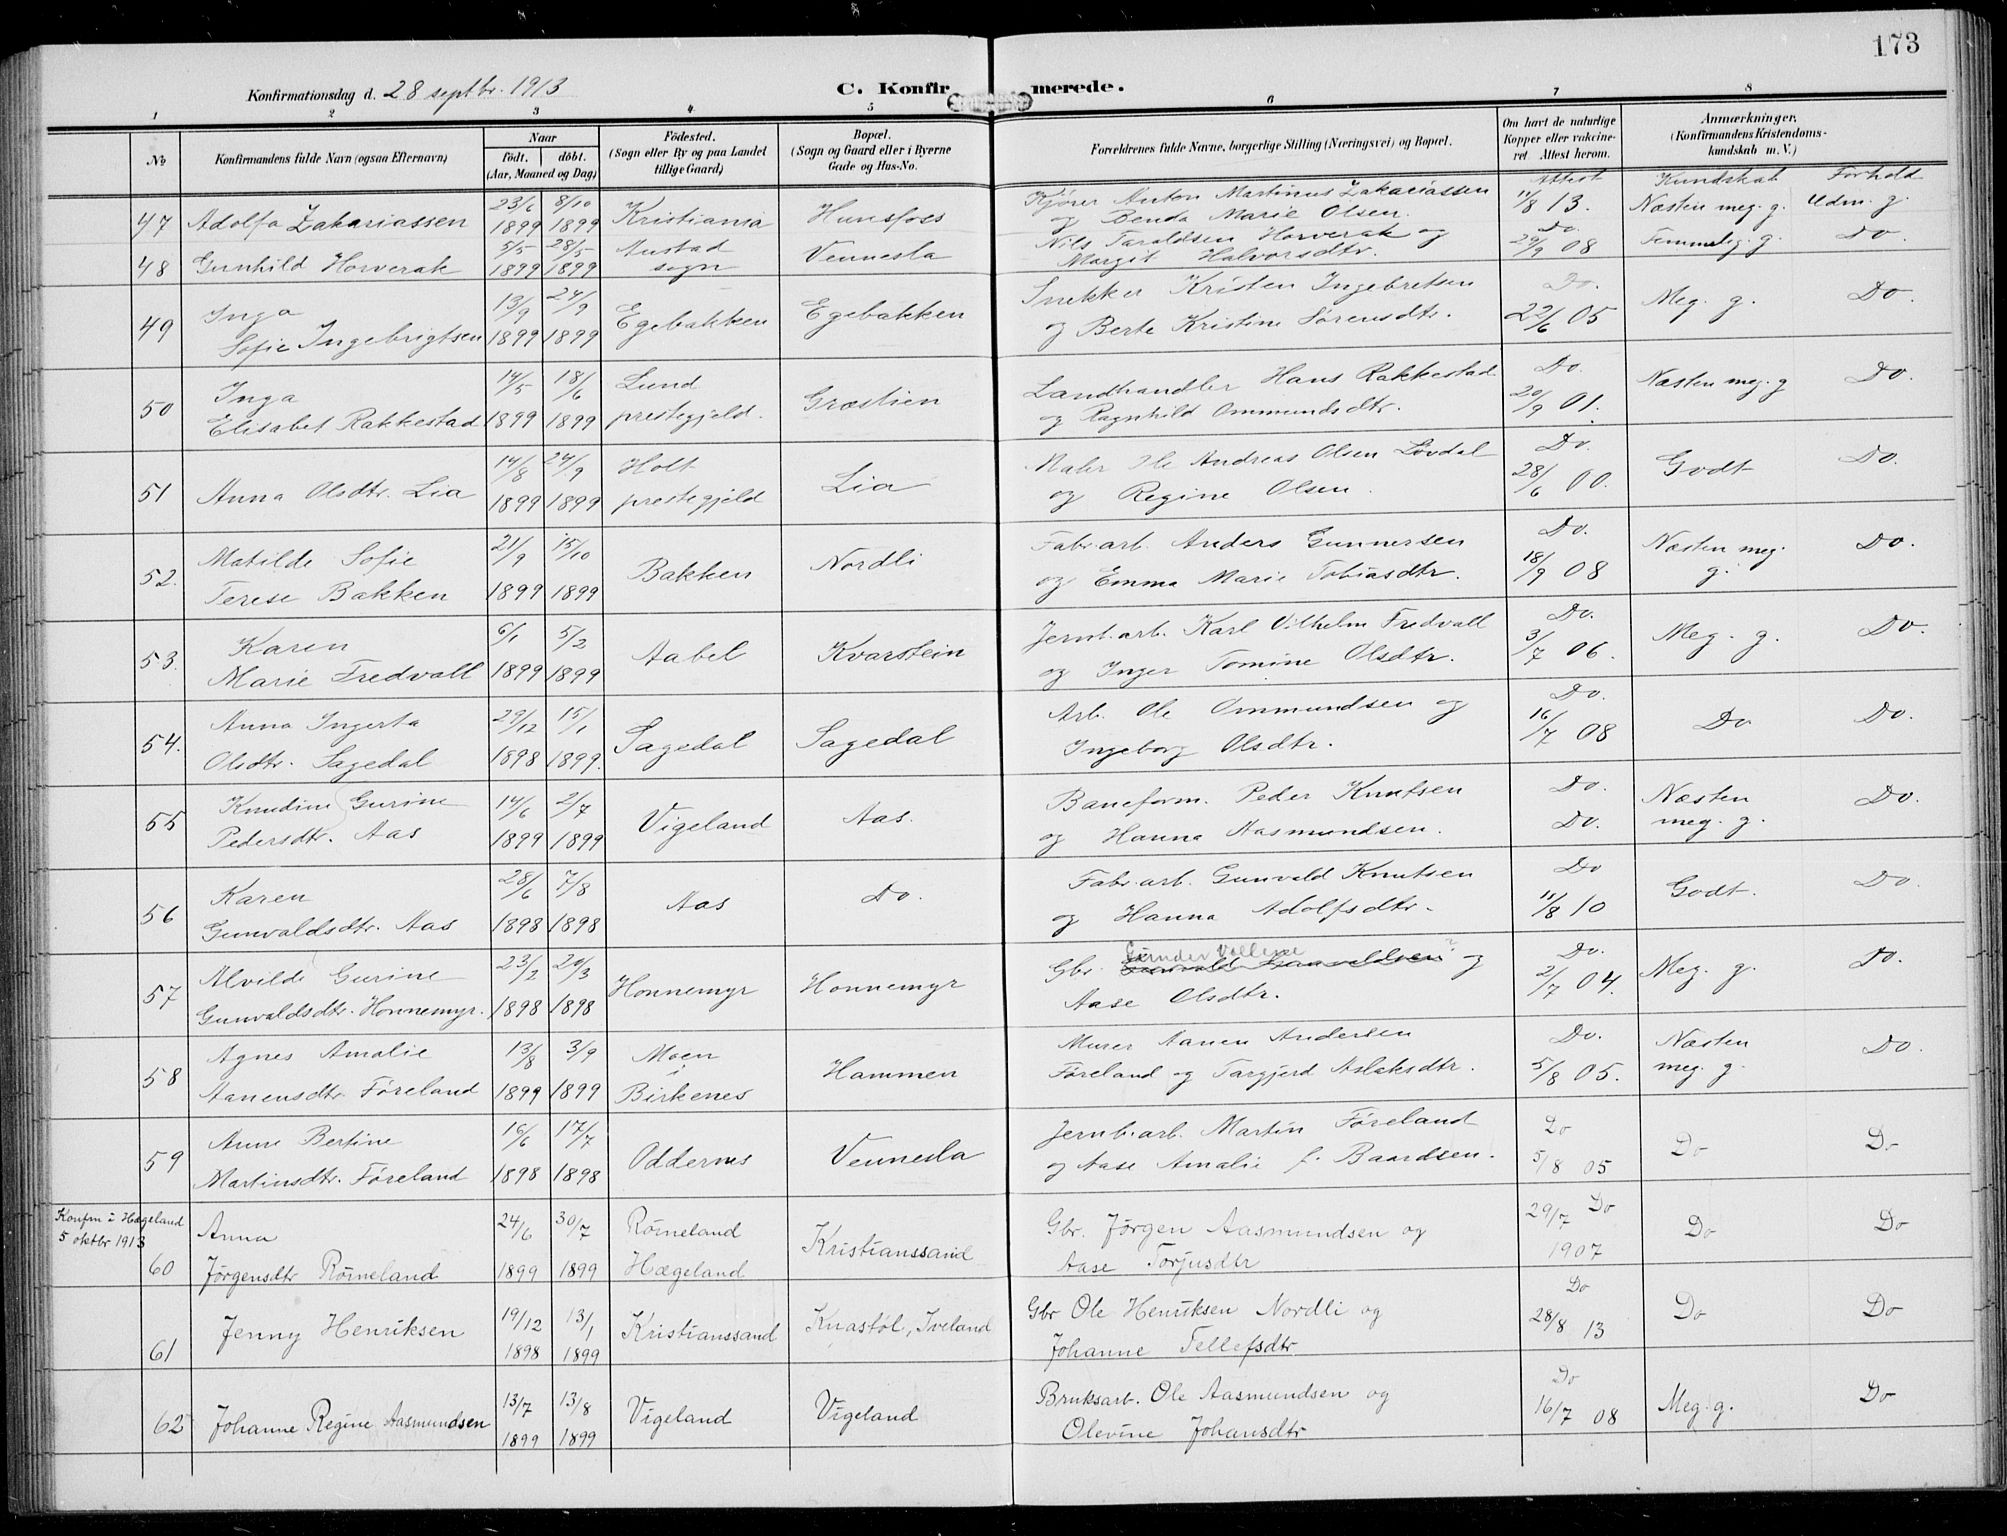 173
Konfirmationsdag d. 28 septbr. 1913
C. Konfirmerede.
1 2 3 4 5 6 7 8
No
Konfirmandens fulde Navn (ogsaa Efternavn)
Naar
født. døbt.
(Aar, Maaned og Dag)
Fødested.
(Sogn eller By og paa Landet
tillige Gaard)
Bopæl.
(Sogn og Gaard eller i Byerne
Gade og Hus-No.
Forældrenes fulde Navne, borgerlige Stilling (Næringsvei) og Bopæl.
Om havt de naturlige
Kopper eller vakcine-
ret Attest herom.
Anmærkninger.
(Konfirmandens Kristendoms-
kundskab m. V.)
Attest Kundskab Forhold
23/6 8/10 Kjører Anton Martinus Zakariassen
47 Adolfa Zakariassen 1899 1899 Kristiania Hunsfoss og Benda Marie Olsen. 11/8 13. Næsten meg. g. Udm. g.
5/5 28/5 Austad Nils Taraldsen Horverak og Do.
48 Gunhild Horverak 1899 1899 sogn Vennesla Margit Halvorsdtr. 29/9 08 Temmelig g. Do.
Inga 13/9 24/9 Snekker Kristen Ingebretsen Do.
49 Sofie Ingebrigtsen 1899 1899 Egebakken Egebakken og Berte Kristine Sørensdtr. 22/6 05 Meg. g. Do.
Inga 14/5 18/6 Lund Landhandler Hans Rakkestad Do.
50 Elisabet Rakkestad 1899 1899 prestegjeld. Græstien og Ragnhild Ommundsdtr. 20/9 01. Næsten meg. g Do.
14/8 24/9 Holt Maler Ole Andreas Olsen Løvdal Do.
51 Anna Olsdtr. Lia 1899 1899 prestegjeld Lia og Regine Olsen. 28/6 00. Godt Do.
Matilde Sofie 21/9 15/10 Fabr.arb. Anders Gunnersen Do.
52. Terese Bakken 1899 1899 Bakken Nordli og Emma Marie Tobiasdtr. 18/9 08 Næsten meg. g. Do.
Karen 6/1 5/2 Jernb.arb. Karl Vilhelm Fredvall Do.
53. Marie Fredvall 1899 1899 Aabel Kvarstein og Inger Tomine Olsdtr. 3/7 06. Meg. g. Do.
Anna Ingerta 29/12 15/1 Arb. Ole Ommundsen og Do.
54. Olsdtr. Sagedal 1898 1899. Sagedal Sagedal Ingeborg Olsdtr. 16/7 08 Do Do.
Knudine Gurine 14/6 2/7 Baneform. Peder Knutsen Do. Næsten
55 Pedersdtr. Aas 1899 1899 Vigeland Aas. og Hanna Aasmundsen. Do. meg. g. Do.
Karen 28/6 7/8 Fabr.arb. Gunvald Knutsen Do
56 Gunvaldsdtr. Aas 1898 1898 Aas Do. og Hanna Adolfsdtr. 11/8 10 Godt. Do.
Alvilde Gurine 23/2 20/3 Gbr. og Do.
57 Gunvaldsdtr. Honnemyr. 1898 1898 Honnemyr Honnemyr Aase Olsdtr. 2/7 04. Meg. g. Do.
Agnes Amalie 13/8 3/9 Moen i Murer Aanen Andersen Do. Næsten
58 Aanensdtr. Føreland 1899 1899 Birkenes Hammen Føreland og Targjerd Aslaksdtr. 5/8 05. meg. g. Do.
Anne Bertine 16/6 17/7 Jernb.arb. Martin Føreland Do
59 Martinsdtr. Føreland 1898 1898 Oddernes Vennesla og Aase Amalie f. Baardsen. 5/8 05 Do Do
Konfm i Hægeland
5 oktbr 1913
Anna 24/6 30/7 Røineland Gbr. Jørgen Aasmundsen og 29/7 Do
60 Jørgensdtr Røineland 1899 1899 Hægeland Kristianssand Aase Torjusdtr 1907 Do Do
19/12 13/1 Gbr Ole Henriksen Nordli og Do
61 Jenny Henriksen 1898 1899 Kristianssand Knastøl, Iveland Johanne Tellefsdtr 28/8 13 Do Do
13/7 13/8 Bruksarb. Ole Aasmundsen og Do
62 Johanne Regine Aasmundsen 1899 1899 Vigeland Vigeland Olevine Johansdtr 16/7 08 Meg. g. Do